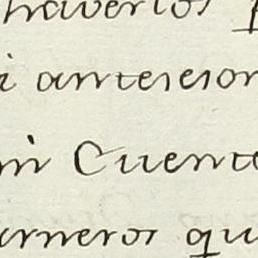 haverlos
i antesesor
in Cuente
arneros qu